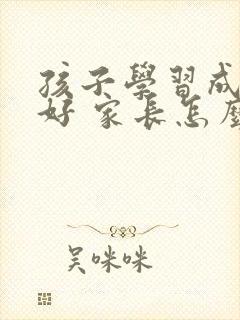 孩子學習成
好 家長怎麼
吴咪咪